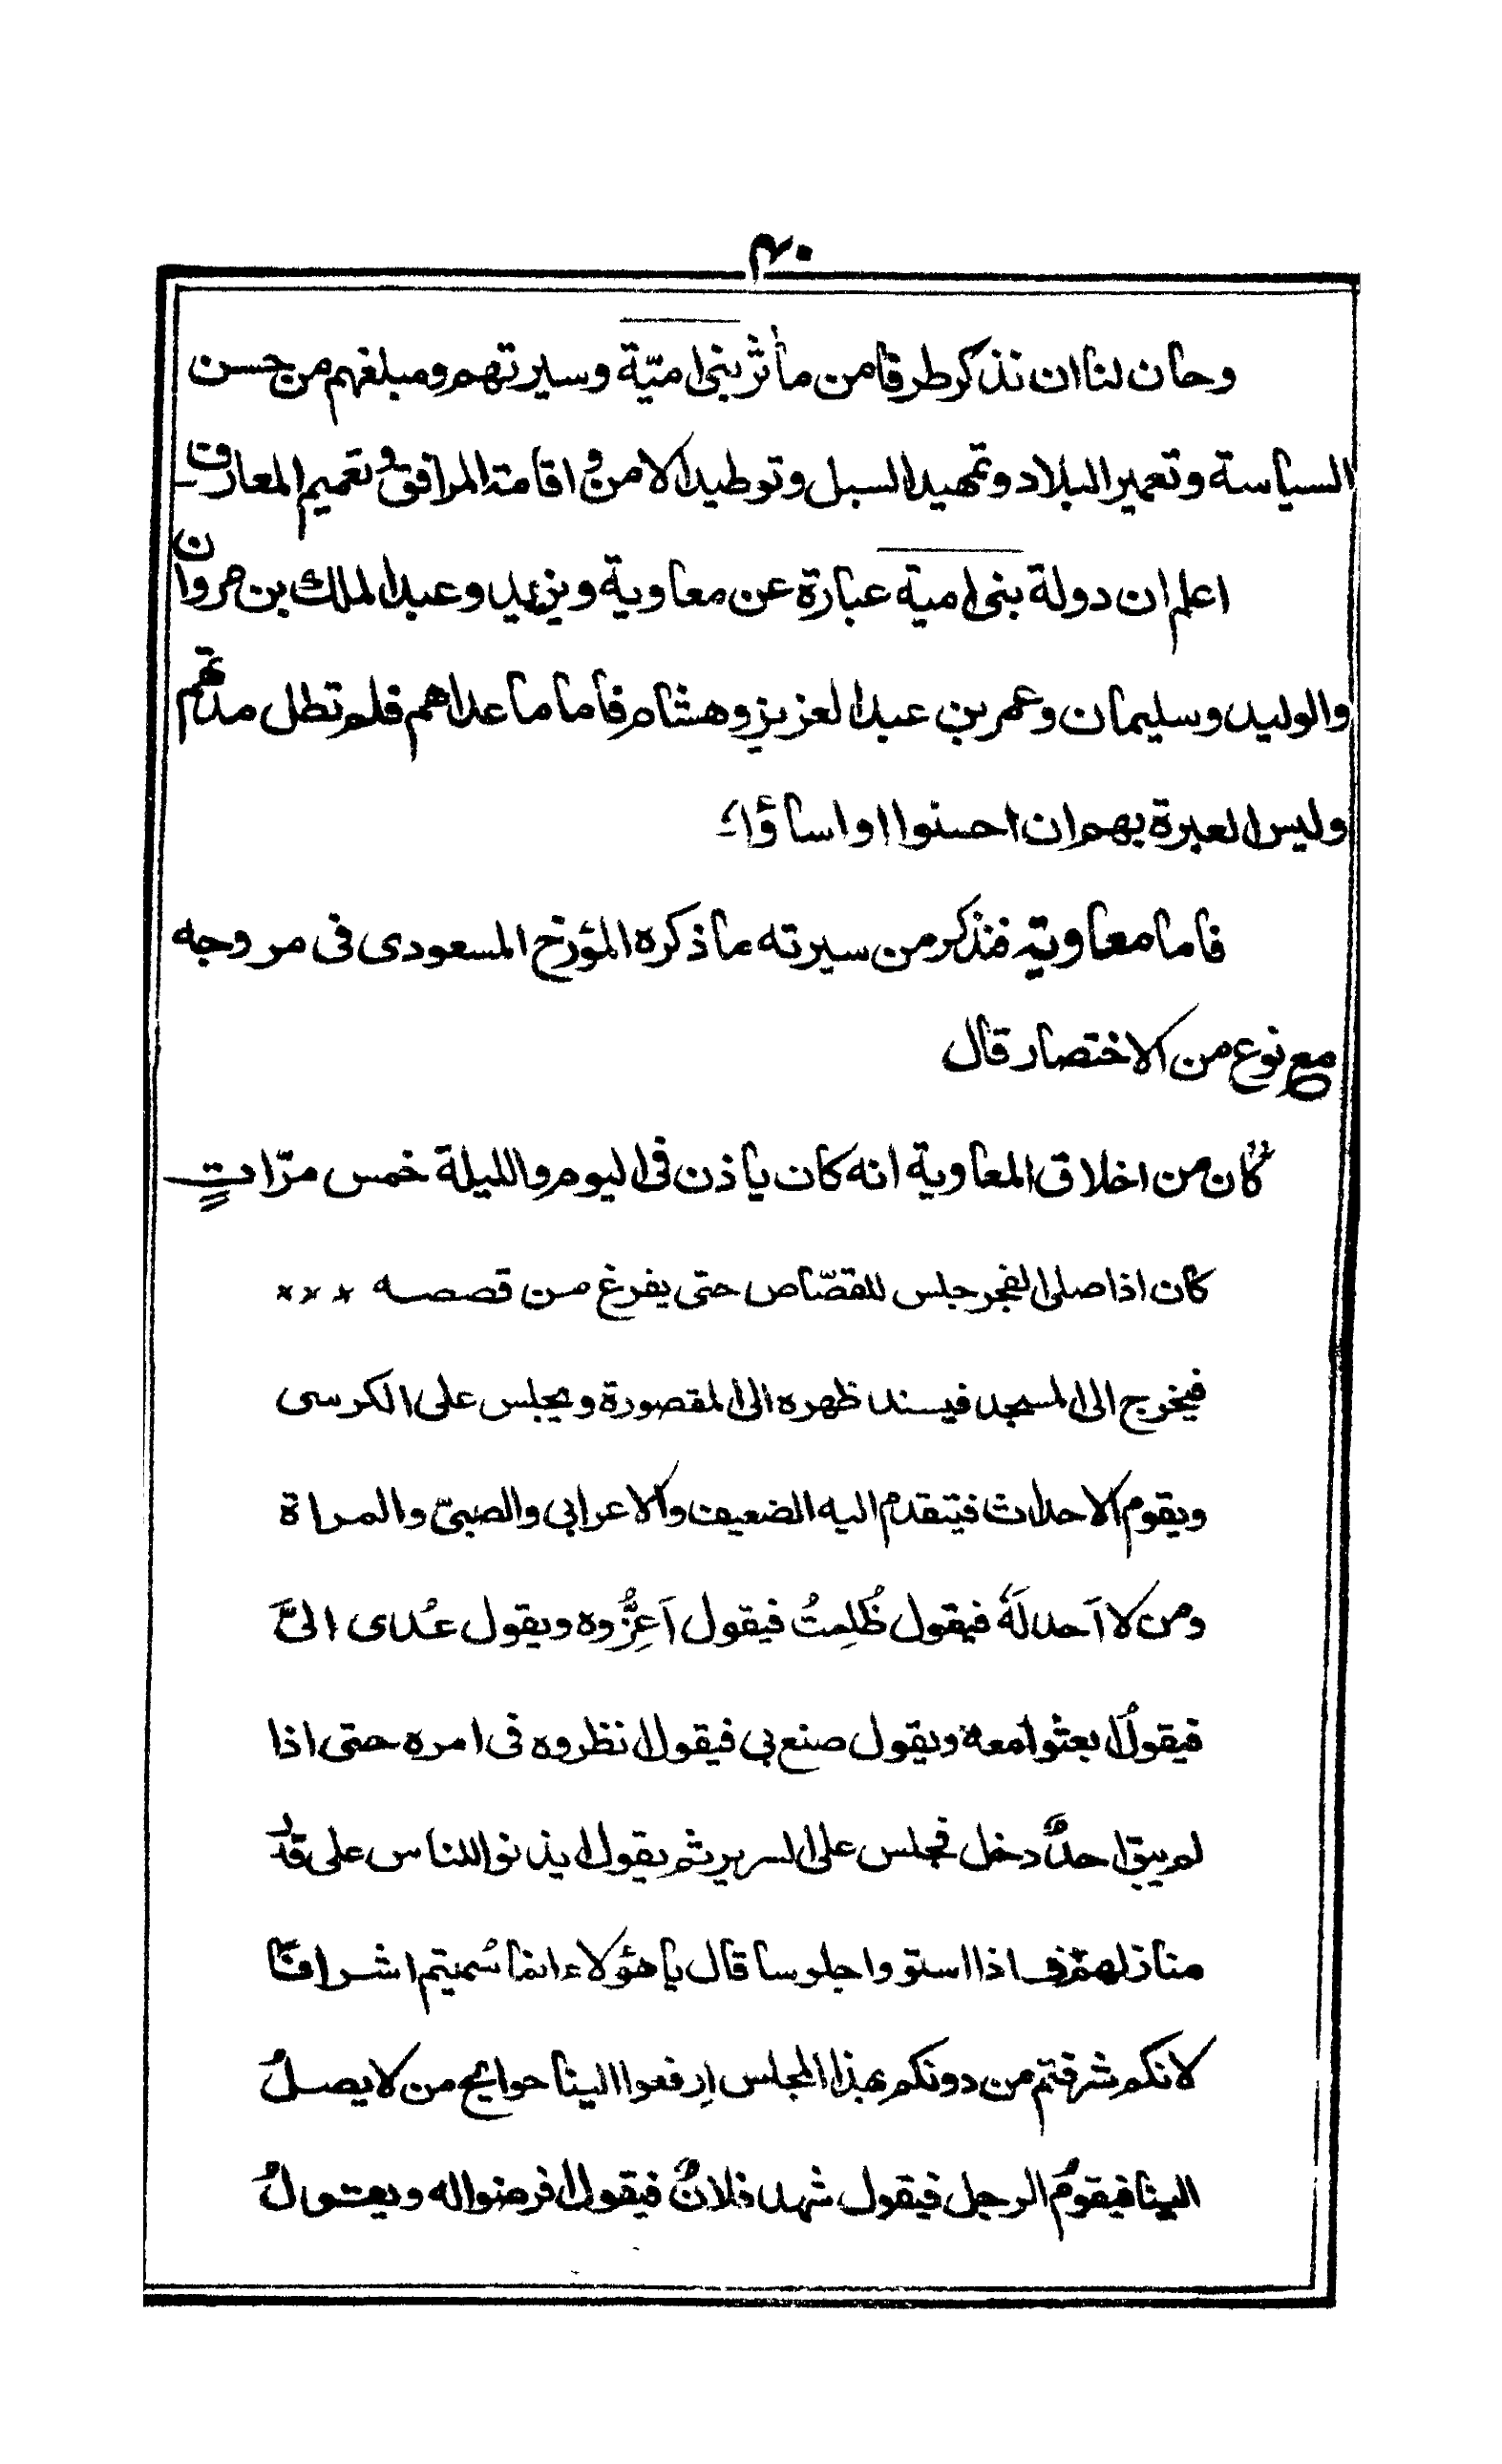 ۴۰
وحان لنا ان نذكر طرفا من مأثر بنى اميّة وسيرتهم ومبلغهم من حسن
السياسة وتعمير البلاد وتمهيد السبل وتوطيد الامن و اقامة المرافق و تعميم المعارف
اعلم ان دولة بنى امية عبارة عن معاوية ويزيد وعبد الملك بن مروان
والوليد وسليمان وعمر بن عبد العزيز وهشام فاما ما عداهم فلم تطل مدتهم
وليس العبرة بهم ان احسنوا او اساؤا
فاما معاوية فنذكر من سيرته ما ذكره المؤرخ المسعودى فى مروجه
مع نوع من الاختصار قال
"كان من اخلاق المعاوية انه كان ياذن فى اليوم والليلة خمس مرّاتٍ
كان اذا صلى الفجر جلس للقصّاص حتى يفرغ من قصصه × × ×
فيخرج الى المسجد فيسند ظهره الى المقصورة ويجلس على الكرسى
ويقوم الاحداث فيتقدم اليه الضعيف والاعرابى والصبىّ والمراة
ومن لا اَحد لَهٗ فيقول ظُلِمتُ فيقول اَعِزُّوه ويقول عُدى الىَّ
فيقولُ ابعثوا معهٗ ويقول صنع بى فيقول انظروه فى امره حتى اذا
لم يبق احدٌ دخل فجلس على السرير ثم يقول ايذنوا للناس على قدر
منازلهم فاذا استووا جلوسا قال يا هؤلاء انما سُميتم اشرافًا
لانكم شرفتم من دونكم بهذا المجلس اِرفعوا الينا حوايج من لا يصلُ
الينا فيقومُ الرجل فيقول شهد فلانٌ فيقول افرضوا له ويقولُ